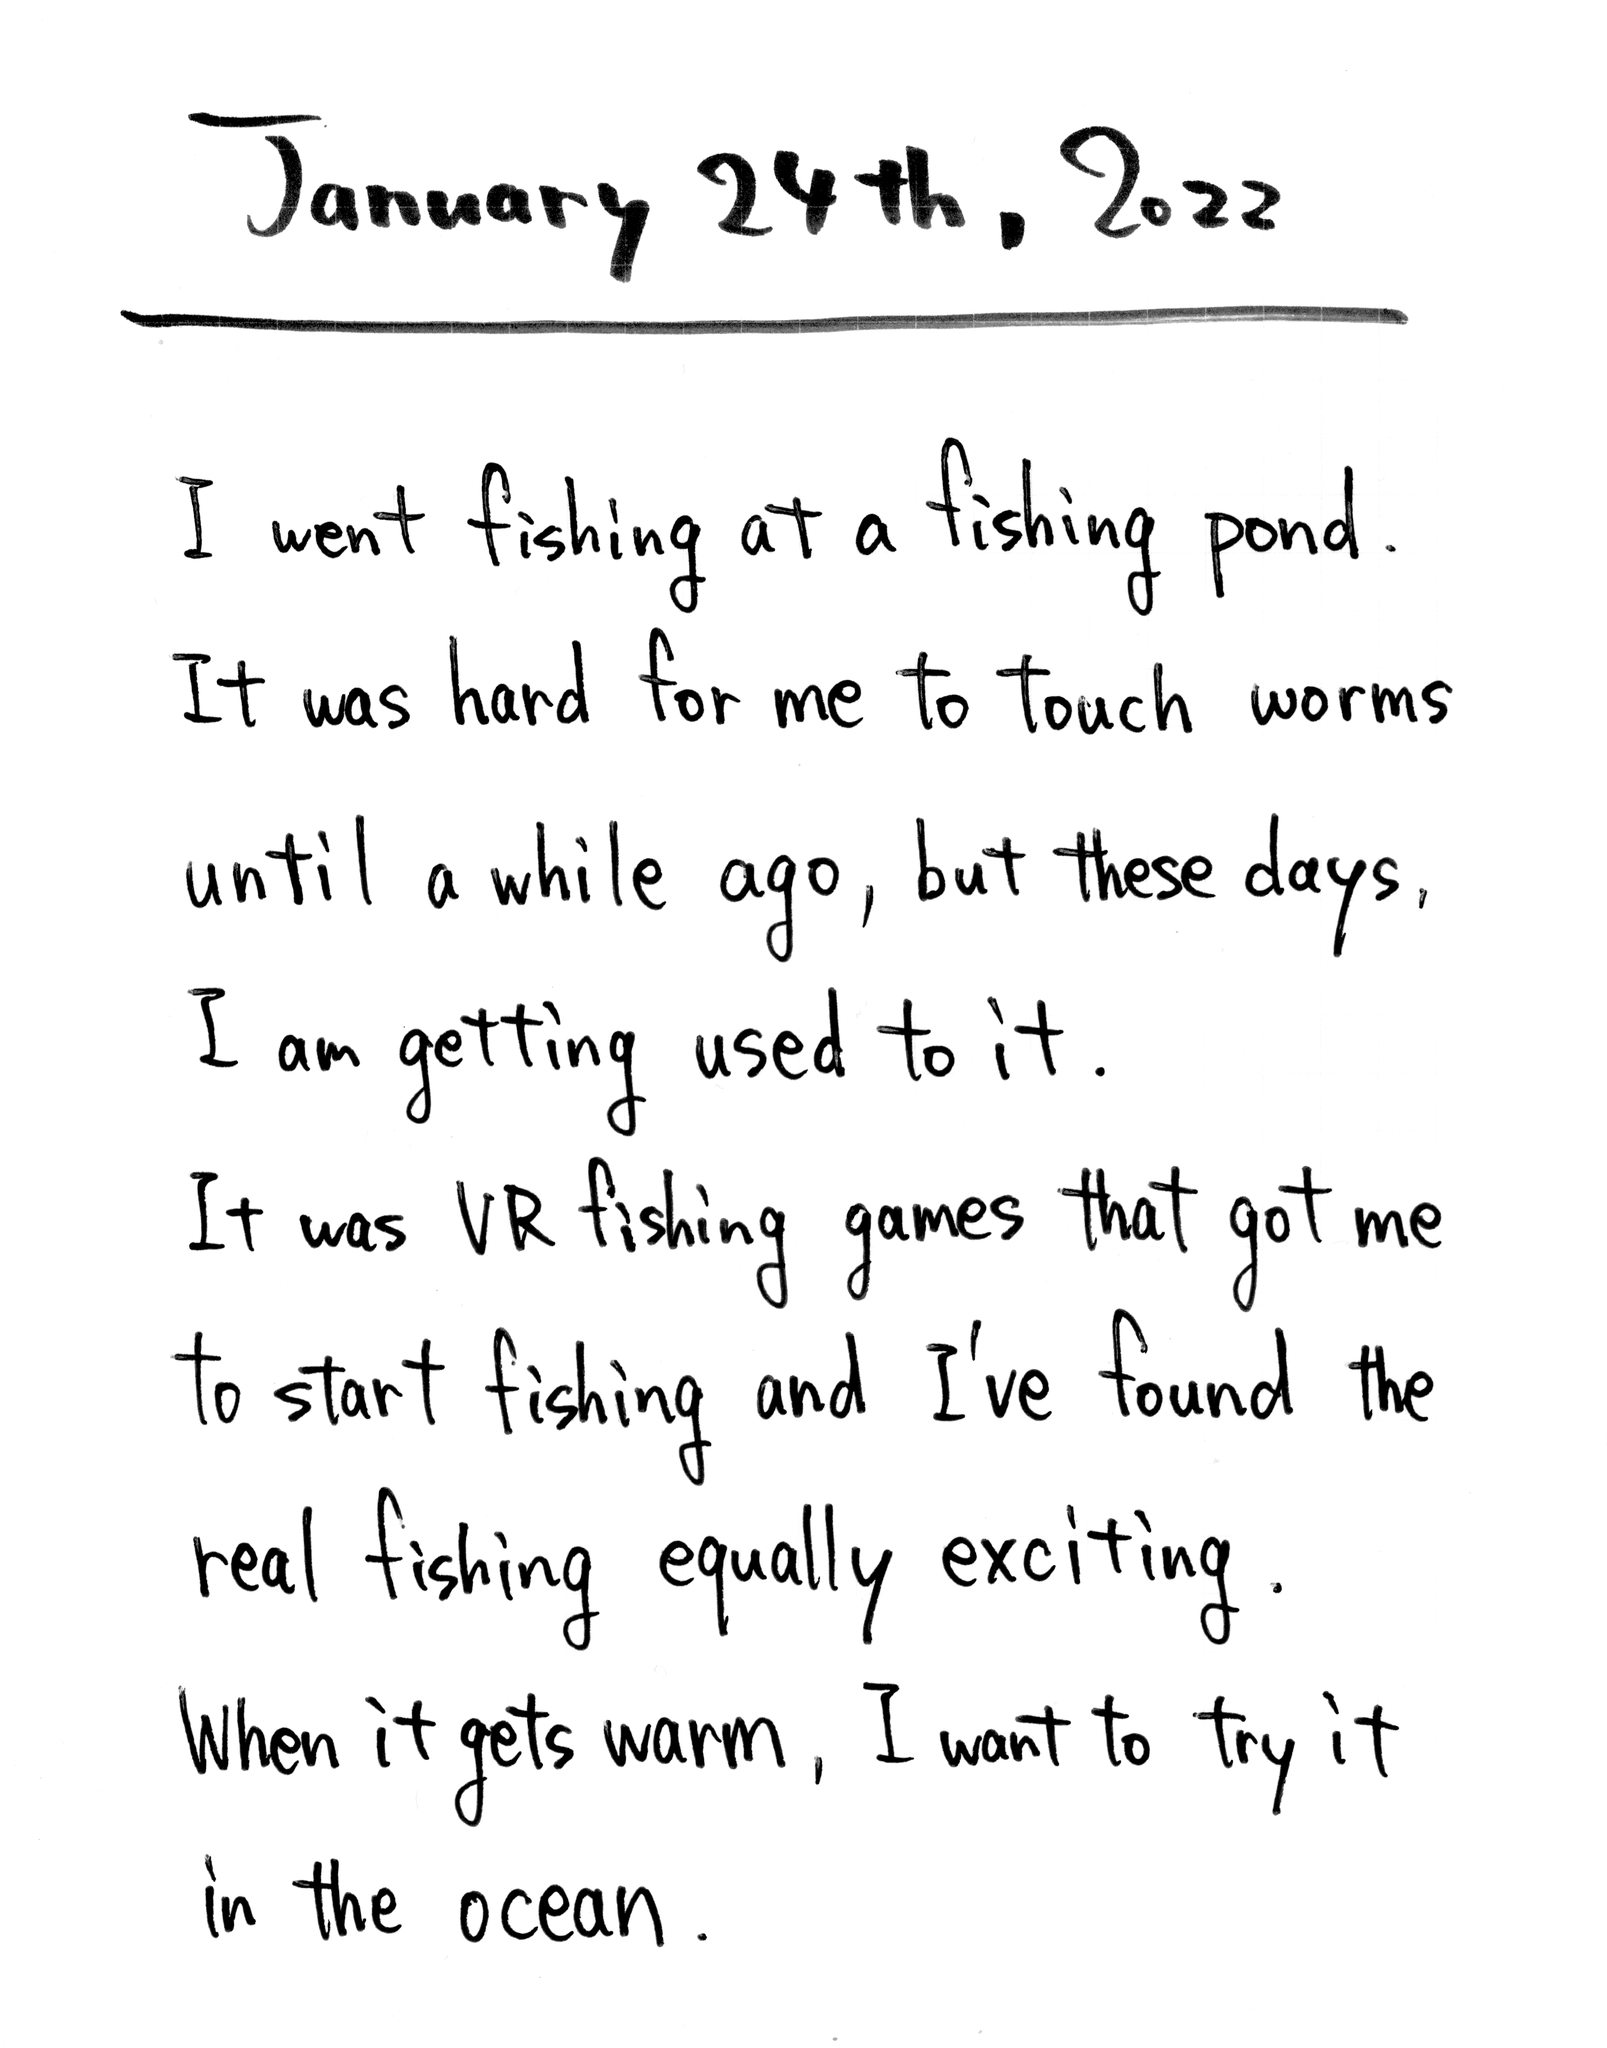 January 24th, 2022
I went fishing at a fishing pond.
It was hard for me to touch worms
until a while ago, but these days,
I am getting used to it.
It was VR fishing games that got me
to start fishing and I've found the
real fishing equally exciting.
When it gets warm, I want to try it
in the ocean.